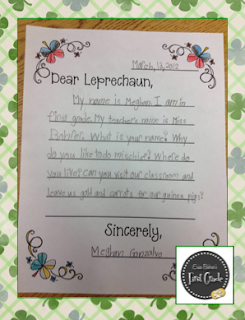 March, 12, 2012
Dear Leprechaun,
My name is Meghan I am in
first grade. My teacher's name is Miss
What is your name? Why
do you like to do mischief? Where do
you live? can you visit our classroom and
leave us gold and carrots for our guinea pigs?
Sincerely,
Meghan
First Grade